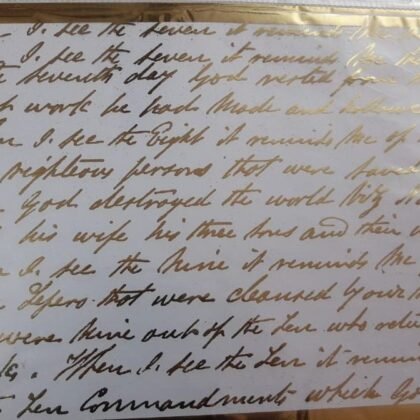 I see the seven it reminds me
I see the seven it reminds me the
the seventh day God rested from
work he had made and
I see the Eight it reminds me of
righteous persons that were saved
God destroyed the world Viz
his wife his three sons and their
I see the Nine it reminds me
Lepers that were cleansed by our
were Nine out of the Ten who
. When I see the Ten it remin
Ten Commandments which God